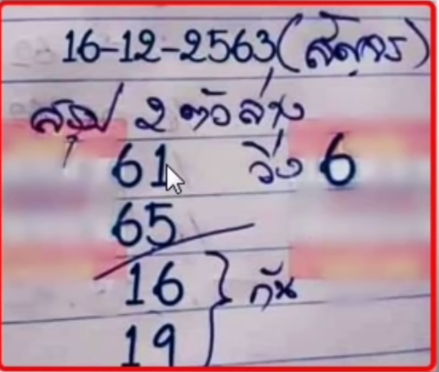 16-12-2563
สรุป 2 ตัวล่าง
61 วิ่ง 6
65
16 } กัน
19